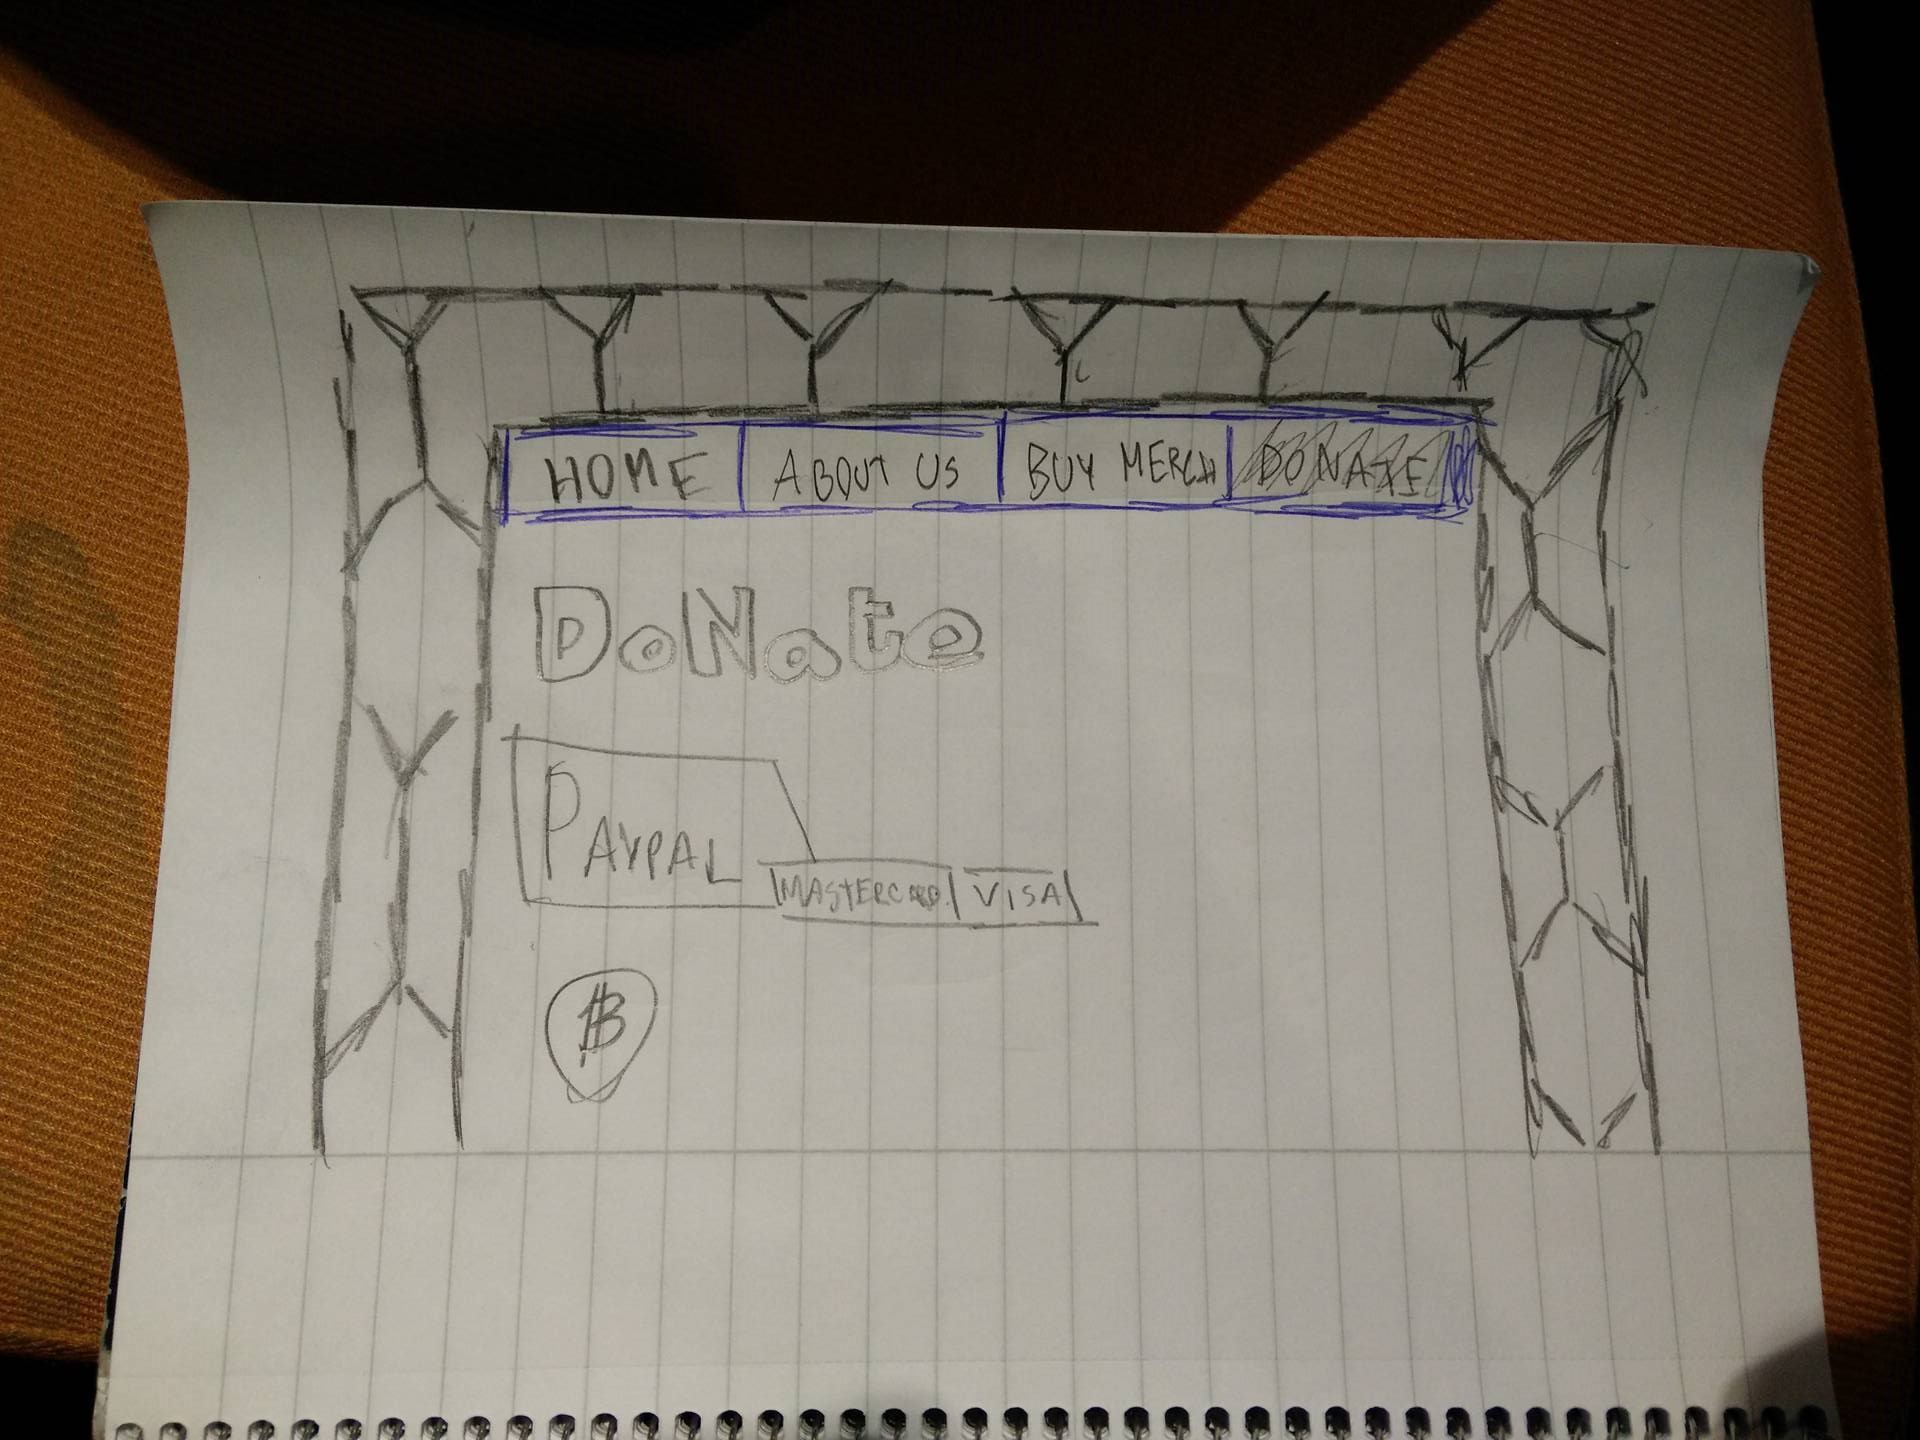 HOME ABOUT US BUY MERCH DONATE
DoNate
PAYPAL
MASTERCARD VISA
₿